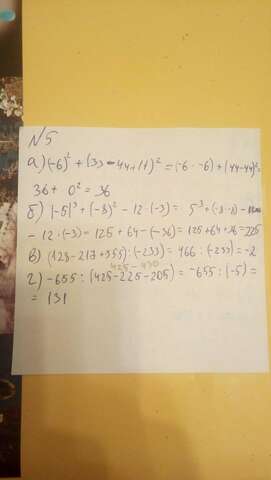 №5
а) (-6)² + (33-44+11)² = (-6·-6) + (44-44)² =
36 + 0² = 36
б) |-5|³ + (-8)² - 12·(-3) = 5³ + (-8·8) -
- 12·(-3) = 125 + 64 - (-36) = 125 + 64 + 36 = 225
в) (128-217+555) : (-233) = 466 : (-233) = -2
425-430
г) -655 : (425-225-205) = -655 : (-5) =
= 131